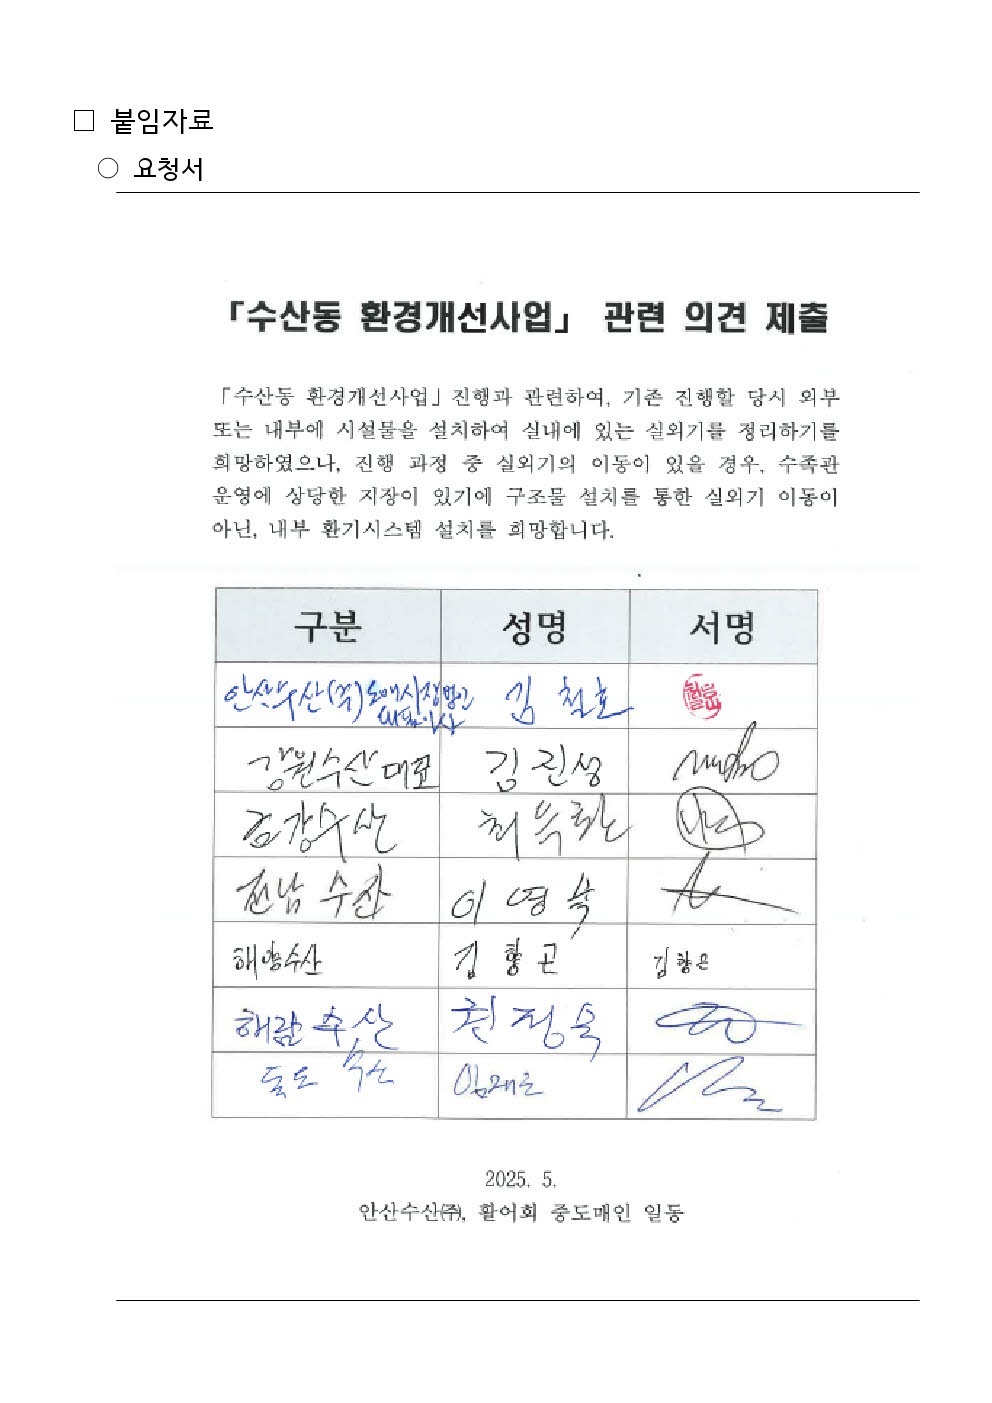 □ 붙임자료
○ 요청서
「수산동 환경개선사업」 관련 의견 제출
「수산동 환경개선사업」진행과 관련하여, 기존 진행할 당시 외부
또는 내부에 시설물을 설치하여 실내에 있는 실외기를 정리하기를
희망하였으나, 진행 과정 중 실외기의 이동이 있을 경우, 수족관
운영에 상당한 지장이 있기에 구조물 설치를 통한 실외기 이동이
아닌, 내부 환기시스템 설치를 희망합니다.
구분 성명 서명
안산수산(주) 도매시장법인 김철호
대표이사
강원수산 대표 김진성
금강수산 최
전남 수산 이영북
해양수산 김향곤 김향은
해람수산 정숙
수산
2025. 5.
안산수산㈜, 활어회 중도매인 일동